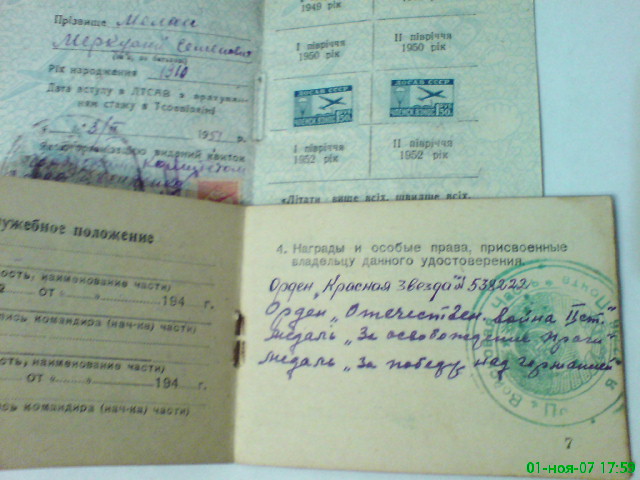 Прізвище Мелан
Меркурий Семенович
Рік народження 1910
Дата вступу в ДТСАВ з врахуван-
ням стажу в Тсоавіахімі
195 р.
Якою організацією виданий квиток
1949 рік
I півріччя
1950 рік
II півріччя
1950 рік
ДОСАВ СССР
ДОСАВ СССР
I півріччя
1952 рік
II півріччя
1952 рік
«Літати вище всіх, швидше всіх,
лужебное положение
ность, наименование части)
ОТ « » 194 г.
пись командира (нач-ка) части)
ость, наименование части)
ОТ « » 194 г.
ись командира (нач-ка) части)
4. Награды и особые права, присвоенные
владельцу данного удостоверения.
Орден „Красная Звезда" № 538222
Орден „Отечествен. война II ст."
медаль „За освобождение праги"
медаль „За победу над германией"
7
01-ноя-07 17:59